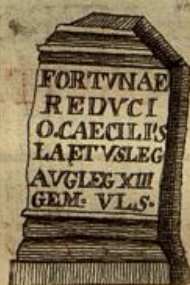 FORTVNAE
REDVCI
O.CAECILIꟾS
LAETVSLEG
AVGLEG XIII
GEM· VL.S·